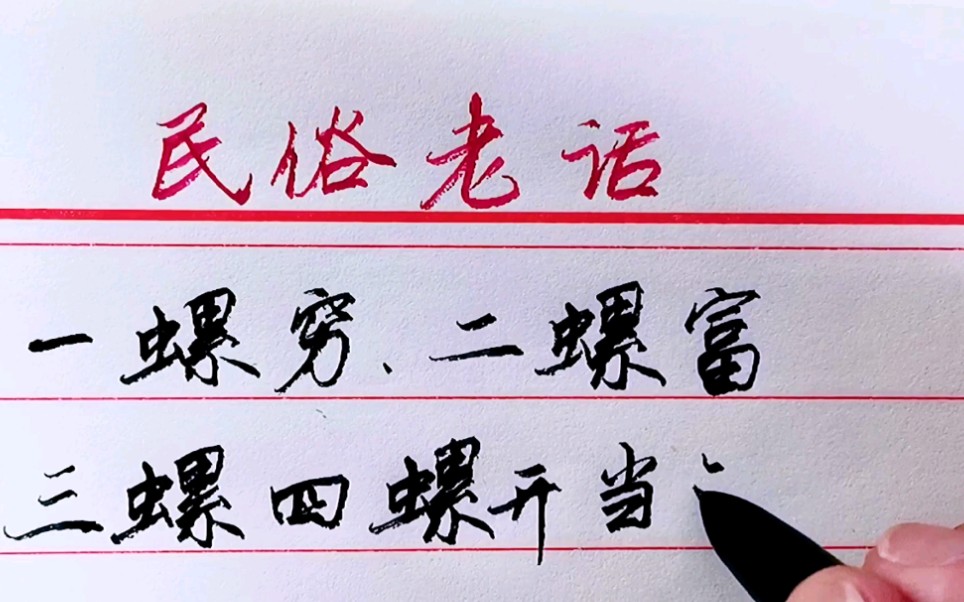 民俗老话
一螺穷、二螺富
三螺四螺开当